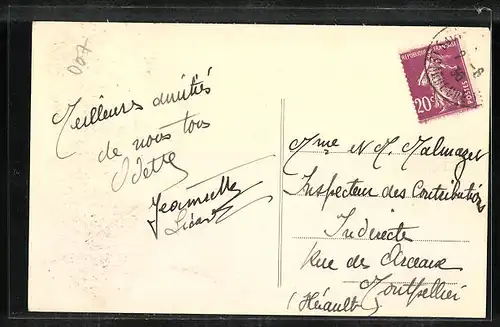 007
Meilleurs amitiés
de nous tous
Odette
Jeannette
RÉPUBLIQUE FRANÇAISE
POSTES
20c
Mme et M. Malmazet
Inspecteur des Contributions
Indirectes
Rue des Arceaux
Montpellier
(Hérault)